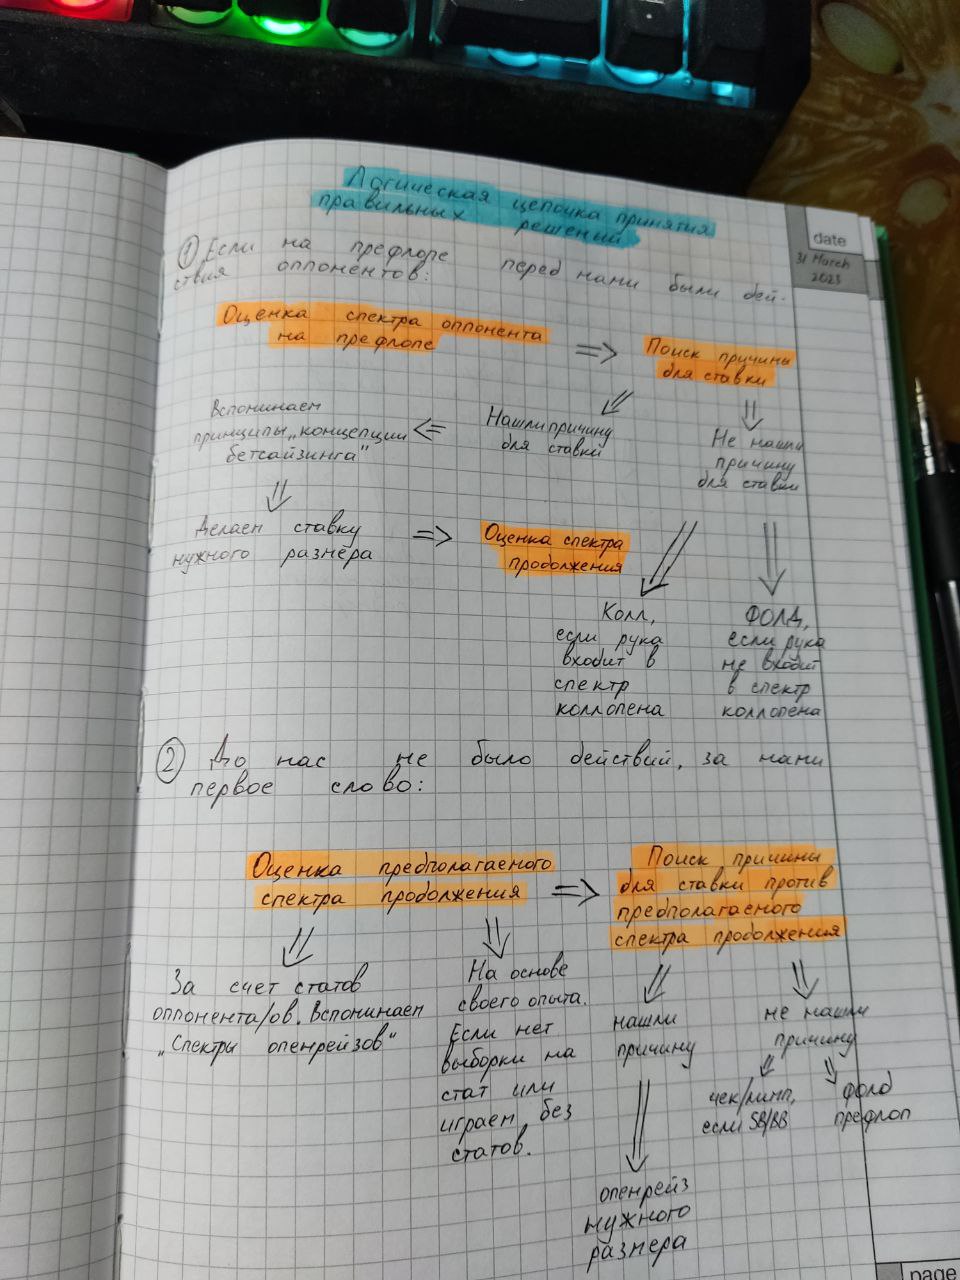 Логическая цепочка принятия
правильных решений
date
31 March
2023
① Если на префлопе перед нами были дей-
ствия оппонентов:
Оценка спектра оппонента
на префлопе
=> Поиск причины
для ставки
Нашли причину
для ставки
Не нашли
причину
для ставки
Вспоминаем
принципы „концепции
бетсайзинга"
Делаем ставку
нужного размера
=> Оценка спектра
продолжения
Колл,
если рука
входит в
спектр
коллопена
ФОЛД,
если рука
не входит
в спектр
коллопена
② До нас не было действий, за нами
первое слово:
Оценка предполагаемого
спектра продолжения
=> Поиск причины
для ставки против
предполагаемого
спектра продолжения
За счет статов
оппонента/ов. Вспоминаем
„Спектры опенрейзов"
На основе
своего опыта.
Если нет
выборки на
стат или
играем без
статов.
нашли
причину
не нашли
причину
чек/лимп,
если SB/BB
фолд
префлоп
опенрейз
нужного
размера
page